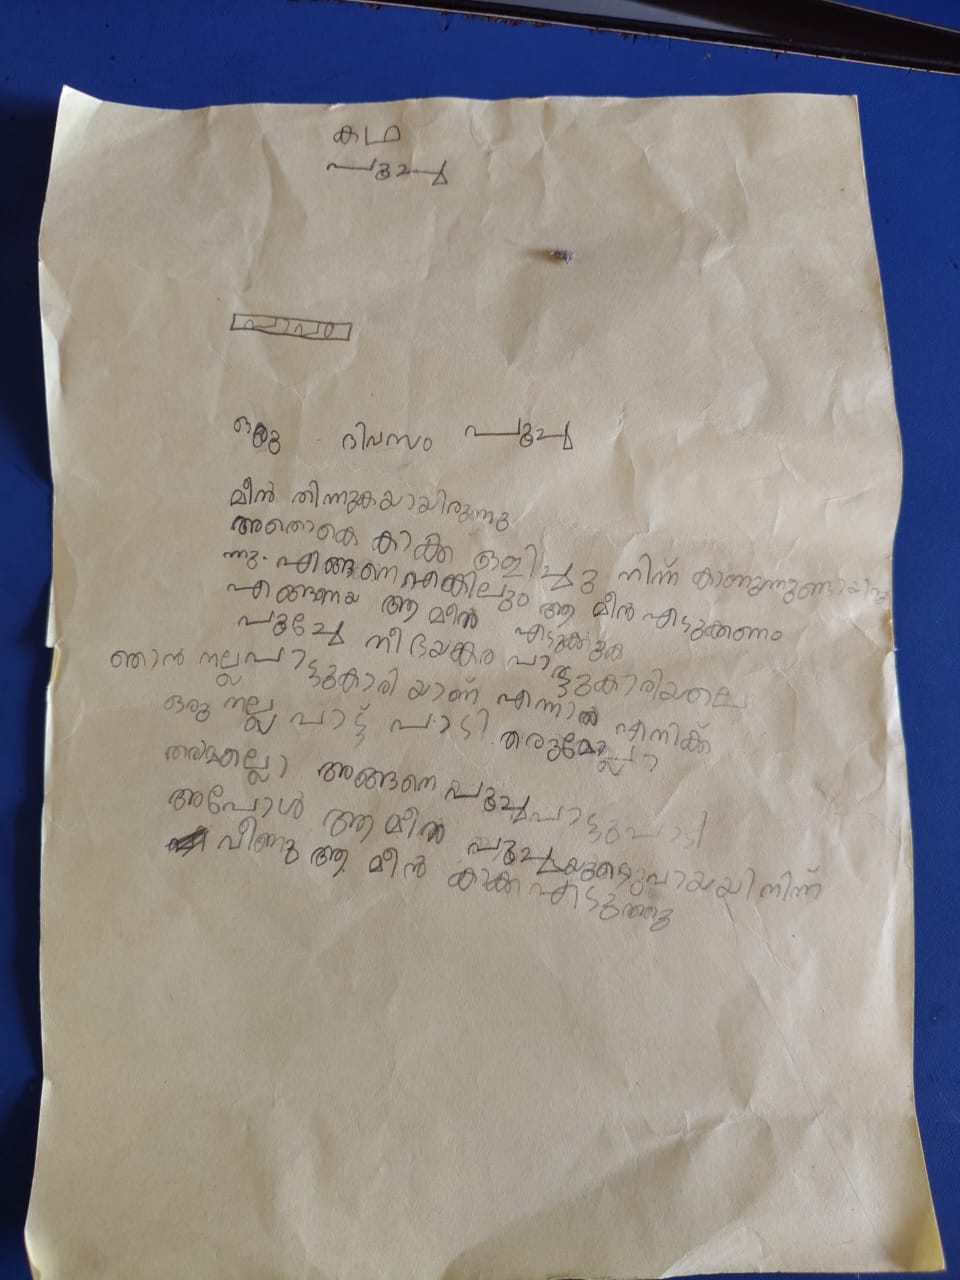 കഥ
പൂച്ച
പാഠം
ഒരു ദിവസം പൂച്ച
മീൻ തിന്നുകയായിരുന്നു
അതൊകെ കാക്ക നിന്ന് കാണുന്നുണ്ടായിരു
ന്നു. എങ്ങനെഎങ്കിലും ആ മീൻ എടുക്കണം
എങ്ങണയ ആ മീൻ എടുക്കുക
പൂച്ചേ നീ ഭയങ്കര പാട്ടുകാരിയലെ
ഞാൻ നല്ലപാട്ടുകാരി യാണ് എന്നാൽ എനിക്ക്
ഒരു നല്ല പാട്ട് പാടി തരുമോ
അങ്ങനെ പൂച്ചപാട്ടുപാടി
അപോൾ ആ മീൻ പൂച്ചയുടെവായയിനിന്ന്
വീണു ആ മീൻ കാക്ക എടുത്തു